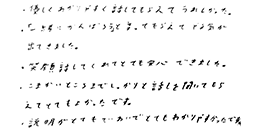 ・優しくわかりやすく話してもらえてうれしかった。
・「一緒にがんばろう」と言ってもらえてやる気が
出てきました。
・笑顔で話してくれてとても安心できました。
・こまかいところまでしっかりと話しを聞いてもら
えてとてもよかったです。
・説明がとてもていねいでとてもわかりやすかったです。